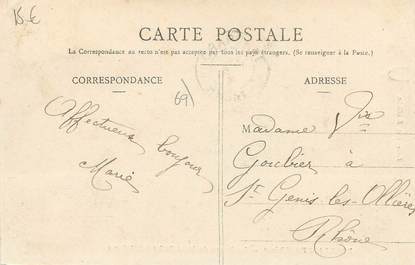 15 €
CARTE POSTALE
La Correspondance au recto n'est pas acceptée par tous les pays étrangers. (Se renseigner à la Poste.)
CORRESPONDANCE
69/
Affectueux bonjour
Marie
ADRESSE
Madame Vve
Goubier à
St Genis les Ollières
Rhône